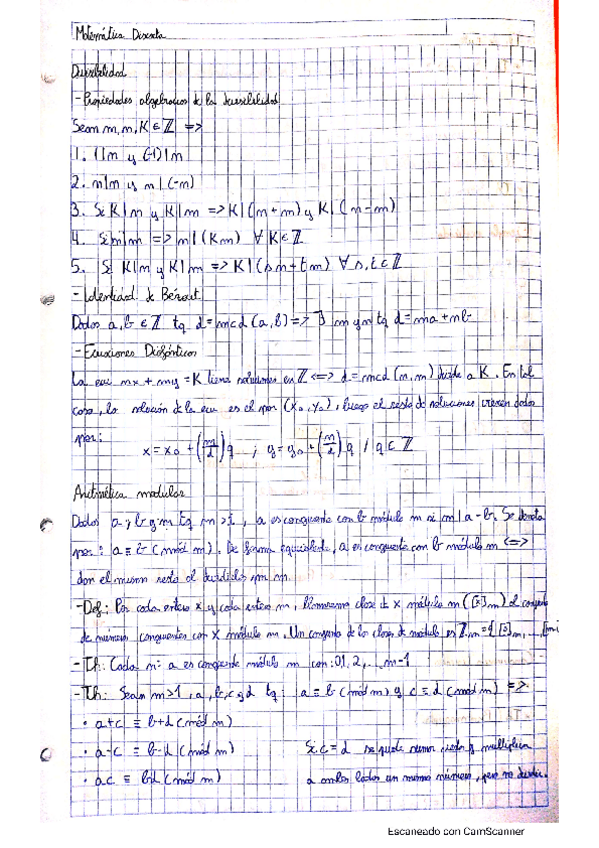 Matemática Discreta
Divisibilidad
- Propiedades algebraicas de la divisibilidad
Sean m, n, K ∈ ℤ =>
1. 1|n y (-1)|n
2. n|n y n|(-n)
3. Si K|n y K|m => K|(m+n) y K|(n-m)
4. Si m|n => m|(Kn) ∀ K∈ℤ
5. Si K|n y K|m => K|(sn+tm) ∀ s,t∈ℤ
- Identidad de Bézout
Dados a, b ∈ ℤ tq d=mcd(a,b) => ∃ m y n tq d=ma+nb
- Ecuaciones Diofánticas
La ecu nx + my = K tiene soluciones en ℤ <=> d=mcd(n,m) divide a K. En tal
caso, la solución de la ecu es el par (x₀,y₀), luego el resto de soluciones vienen dadas
por:
x = x₀ + (m/d)q ; y = y₀ + (n/d)q / q∈ℤ
Aritmética modular
Dados a, b y m tq m>1, a es congruente con b módulo m si m|a-b. Se denota
por: a ≡ b (mód m). De forma equivalente, a es congruente con b módulo m <=>
dan el mismo resto al dividirlos por m.
- Def: Por cada entero x y cada entero m, llamamos clase de x módulo m ([x]m) al conjunto
de números congruentes con x módulo m. Un conjunto de las clases de módulo es ℤm={[0]m,...
- Th: Cada nº a es congruente módulo m con: 0,1,2,... m-1
- Th: Sean m>1, a, b, c y d tq: a ≡ b (mód m) y c ≡ d (mód m) =>
· a+c ≡ b+d (mód m)
· a-c ≡ b-d (mód m) Si c=d se puede sumar, restar y multiplicar
· a.c ≡ b.d (mód m) a ambos lados un mismo número, pero no dividir.
Escaneado con CamScanner